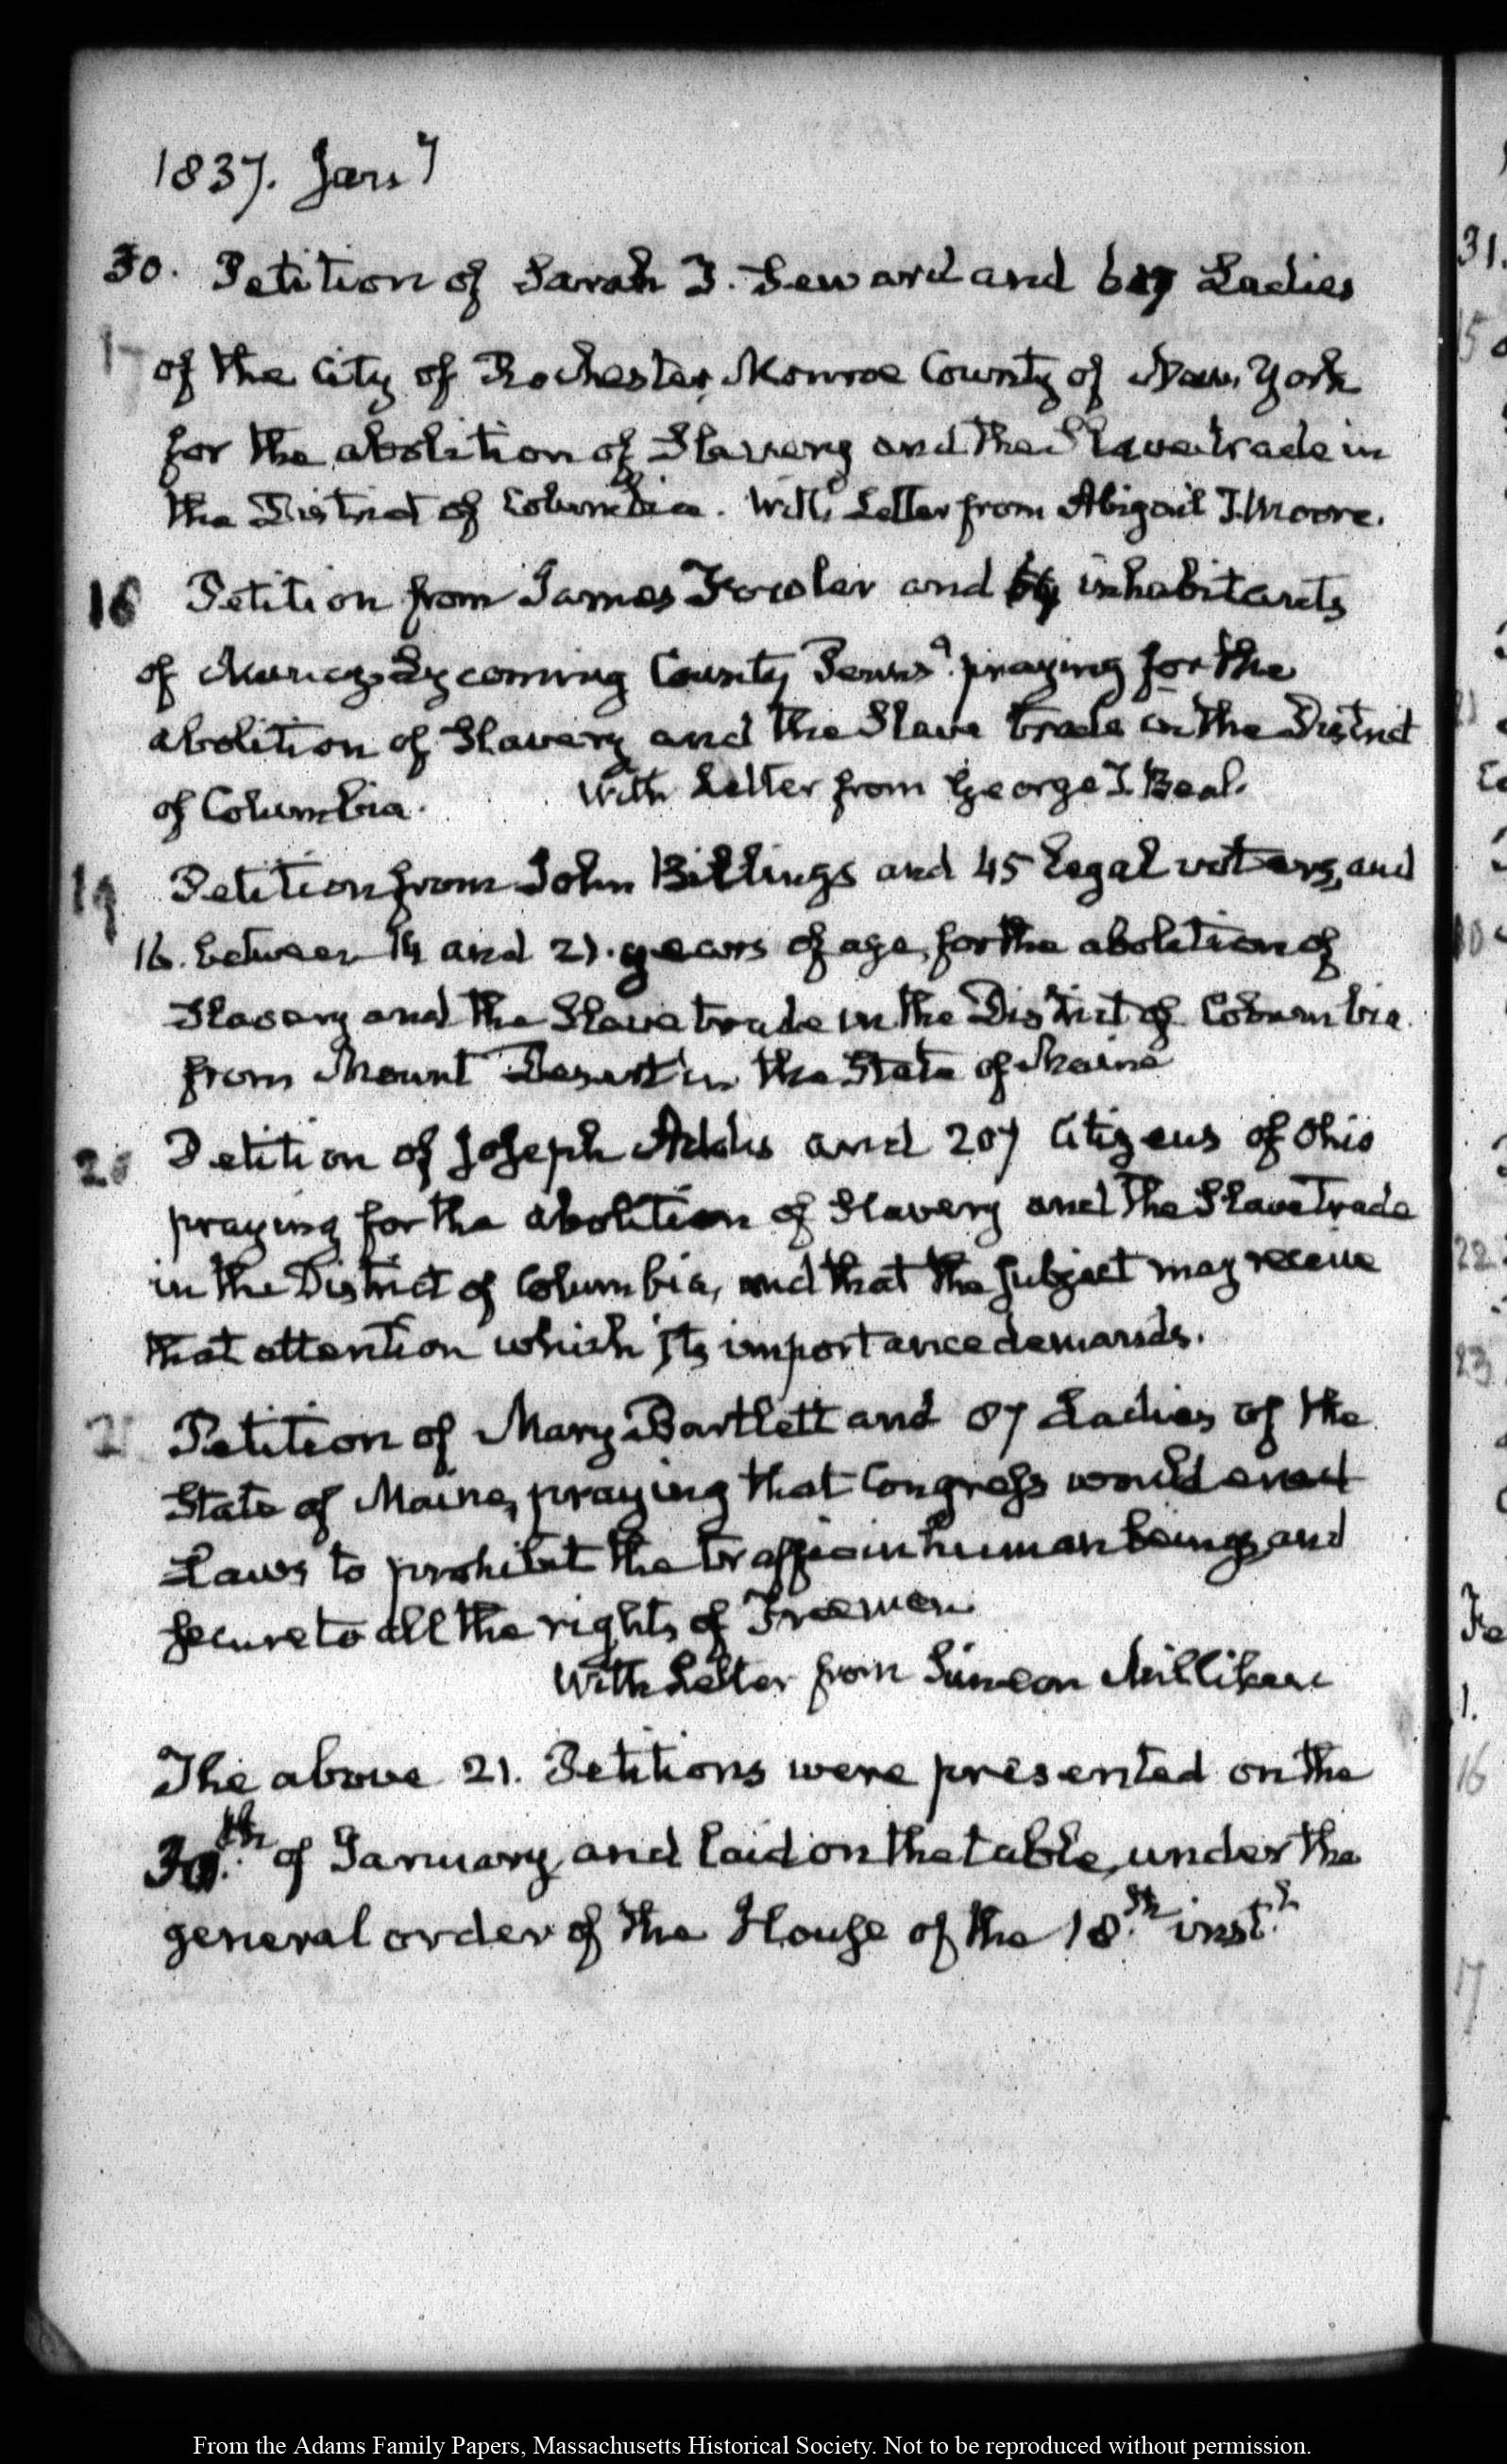 1837. Jany
30. Petition of Sarah T. Seward and Ladies
17 of the City of Rochester, Monroe County of New York
for the abolition of Slavery and the Slave trade in
the District of Columbia. With Letter from Abigail T. Moore.
18 Petition from James Fowler and inhabitants
of Muncy, Lycoming County Penns.a praying for the
abolition of Slavery and the Slave trade in the District
of Columbia. With Letter from George T. Beal.
19 Petition from John Billings and 45 legal voters, and
16. between 14 and 21. years of age, for the abolition of
Slavery and the Slave trade in the District of Columbia.
from Mount Desert in the State of Maine
20 Petition of Joseph Addis and 207 Citizens of Ohio
praying for the abolition of Slavery and the Slave Trade
in the District of Columbia, and that the subject may receive
that attention which its importance demands.
21 Petition of Mary Bartlett and 87 Ladies of the
State of Maine, praying that Congress would enact
Laws to prohibit the traffic in human beings, and
secure to all the rights of Freemen
With Letter from Simeon Milliken
The above 21. Petitions were presented on the
30.th of January, and laid on the table, under the
general order of the House of the 18.th inst.t
31.
15
22
23
Fe
1.
16
17
From the Adams Family Papers, Massachusetts Historical Society. Not to be reproduced without permission.